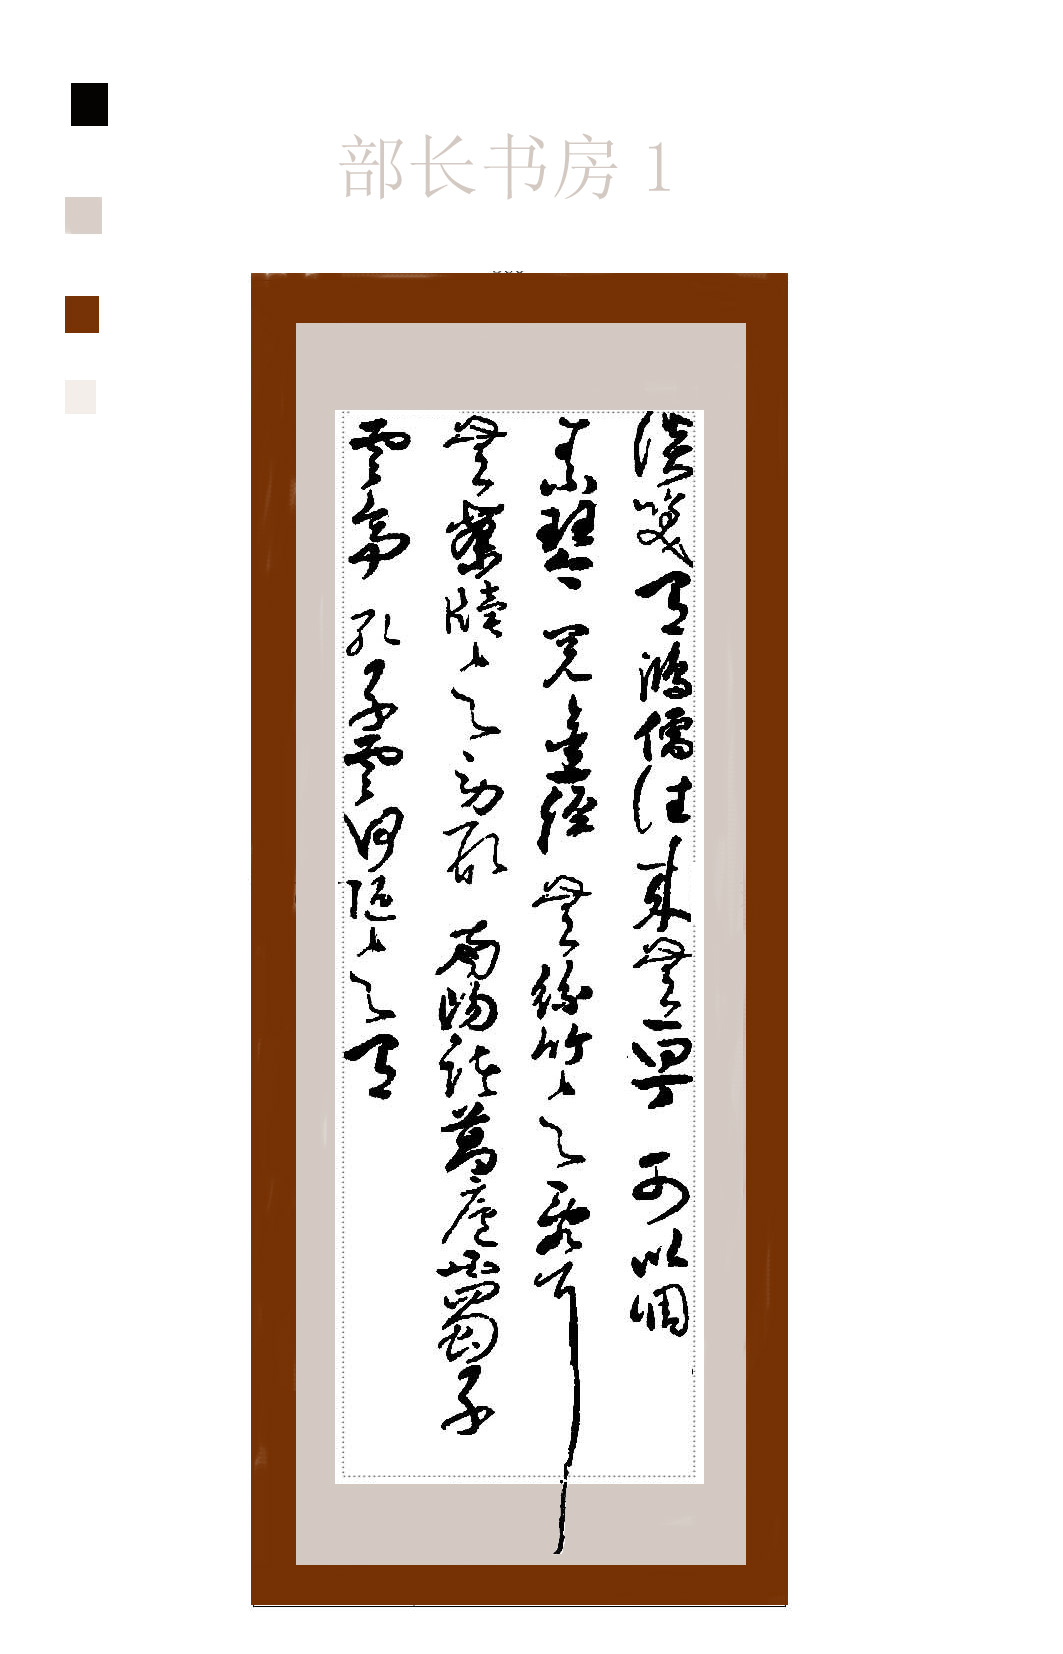 部长书房1
談笑有鴻儒往來無白丁 可以調
素琴 閱金經 無絲竹之亂耳
無案牘之勞形 南陽諸葛廬西蜀子
雲亭 孔子雲何陋之有